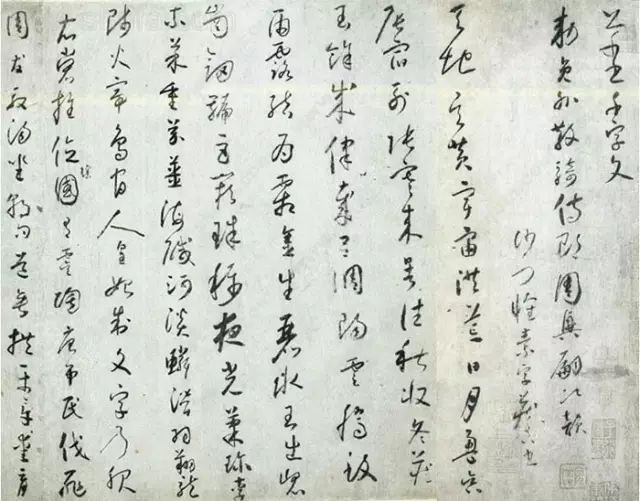 千字文
敕員外散騎侍郎周興嗣次韻
沙門懷素字藏真書
天地玄黃宇宙洪荒日月盈昃
辰宿列張寒來暑往秋收冬藏
閏餘成律歲呂調陽雲騰致
雨露結為霜金生麗水玉出崐
崗劍號巨闕珠稱夜光菓珍李
柰菜重芥薑海鹹河淡鱗潛羽翔龍
師火帝鳥官人皇始制文字乃服
衣裳推位讓國有虞陶唐弔民伐罪
周發殷湯坐朝問道垂拱平章愛育